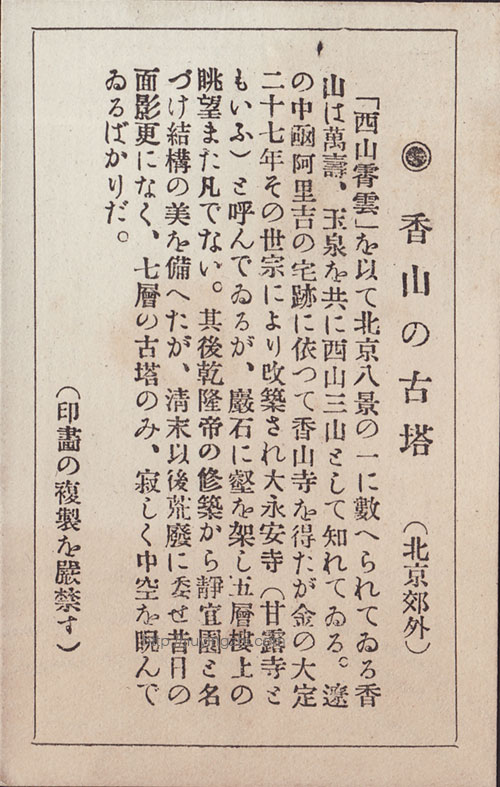 ◉ 香山の古塔 （北京郊外）
「西山霽雲」を以て北京八景の一に數へられてゐる香
山は萬壽、玉泉を共に西山三山として知れてゐる。遼
の中凾阿里吉の宅跡に依つて香山寺を得たが金の大定
二十七年その世宗により改築され大永安寺（甘露寺と
もいふ）と呼んでゐるが、巖石に壑を架し五層樓上の
眺望また凡でない。其後乾隆帝の修築から靜宜園と名
づけ結構の美を備へたが、淸末以後荒廢に委せ昔日の
面影更になく、七層の古塔のみ、寂しく中空を睨んで
ゐるばかりだ。
（印畫の複製を嚴禁す）